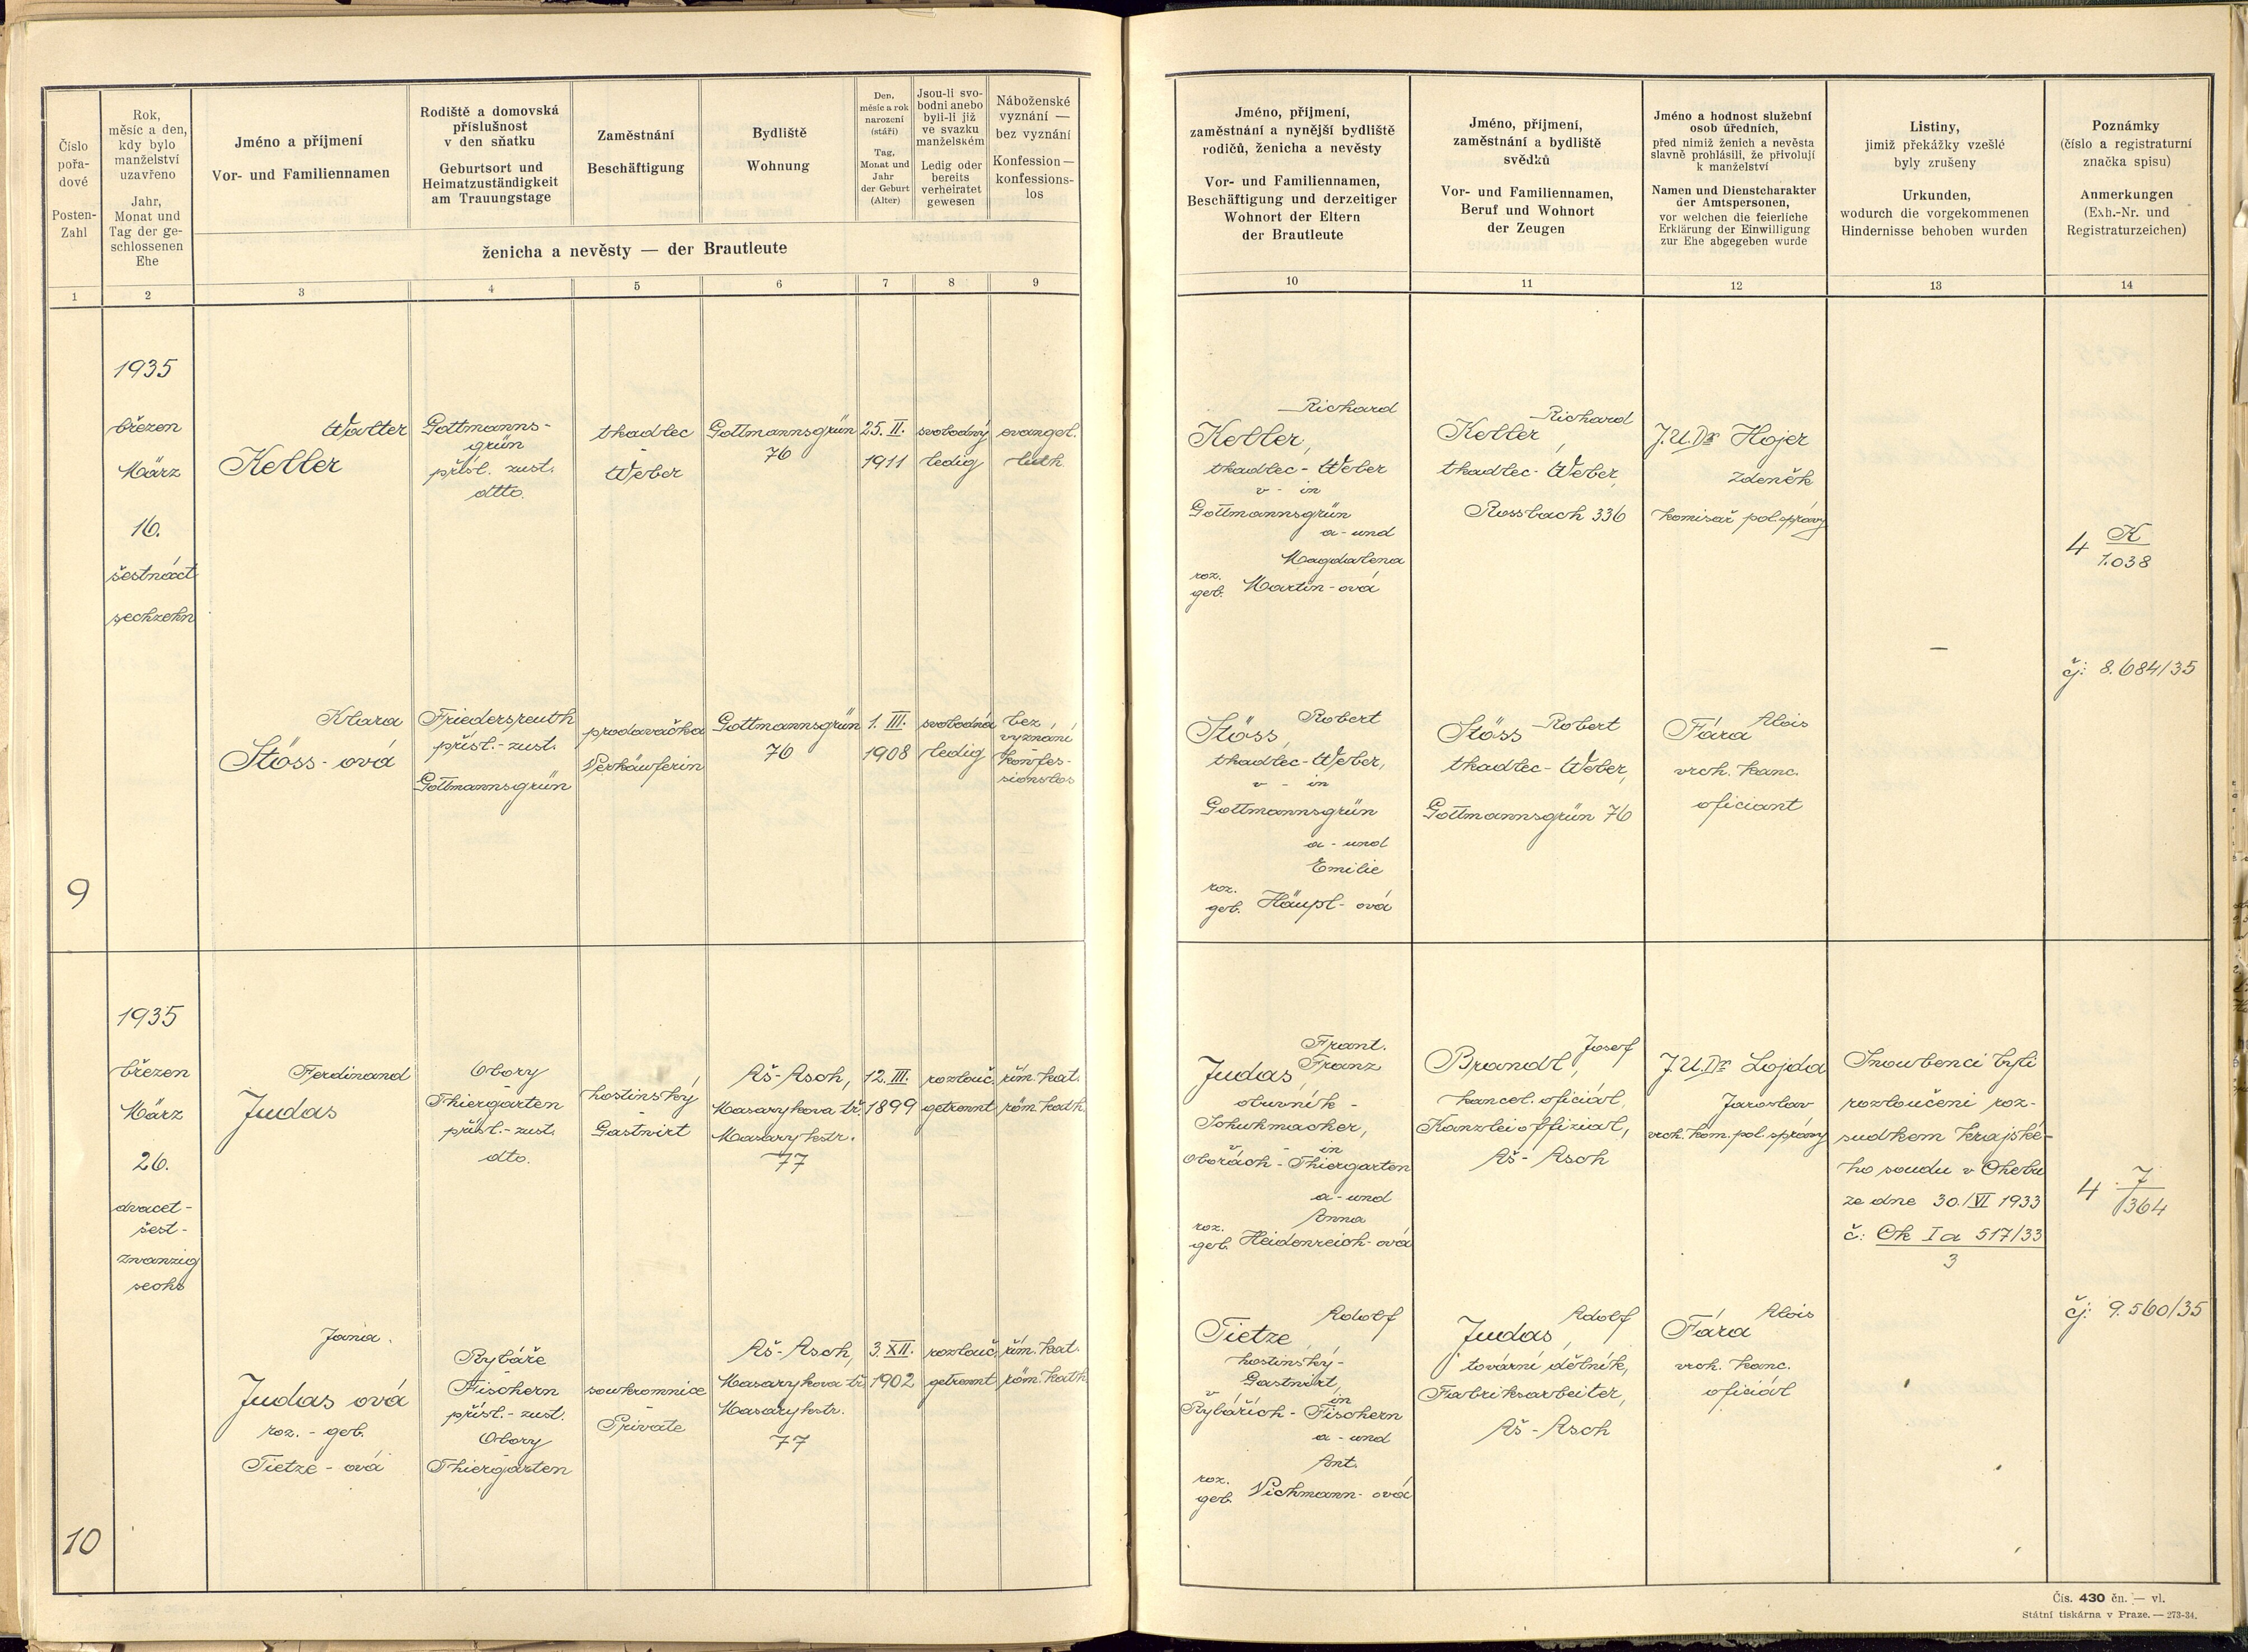 Číslo
pořa-
dové
Posten-
Zahl
Rok,
měsíc a den,
kdy bylo
manželství
uzavřeno
Jahr,
Monat und
Tag der ge-
schlossenen
Ehe
Jméno a příjmení
Vor- und Familiennamen
Rodiště a domovská
příslušnost
v den sňatku
Geburtsort und
Heimatzuständigkeit
am Trauungstage
Zaměstnání
Beschäftigung
Bydliště
Wohnung
Den,
měsíc a rok
narození
(stáří)
Tag,
Monat und
Jahr
der Geburt
(Alter)
Jsou-li svo-
bodni anebo
byli-li již
ve svazku
manželském
Ledig oder
bereits
verheiratet
gewesen
Náboženské
vyznání —
bez vyznání
Konfession —
konfessions-
los
ženicha a nevěsty — der Brautleute
1
2
3
4
5
6
7
8
9
Jméno, příjmení,
zaměstnání a nynější bydliště
rodičů, ženicha a nevěsty
Vor- und Familiennamen,
Beschäftigung und derzeitiger
Wohnort der Eltern
der Brautleute
Jméno, příjmení,
zaměstnání a bydliště
svědků
Vor- und Familiennamen,
Beruf und Wohnort
der Zeugen
Jméno a hodnost služební
osob úředních,
před nimiž ženich a nevěsta
slavně prohlásili, že přivolují
k manželství
Namen und Dienstcharakter
der Amtspersonen,
vor welchen die feierliche
Erklärung der Einwilligung
zur Ehe abgegeben wurde
Listiny,
jimiž překážky vzešlé
byly zrušeny
Urkunden,
wodurch die vorgekommenen
Hindernisse behoben wurden
Poznámky
(číslo a registraturní
značka spisu)
Anmerkungen
(Exh.-Nr. und
Registraturzeichen)
10
11
12
13
14
9
1935
březen
März
16.
šestnáct
sechzehn
Walter
Keller
Gottmanns-
grün
přísl. zust.
dtto.
tkadlec
-
Weber
Gottmannsgrün
76
25. II.
1911
svobodný
ledig
evangel.
luth.
Klara
Stöss - ová
Friedersreuth
přísl. - zust.
Gottmannsgrün
prodavačka
Verkäuferin
Gottmannsgrün
76
1. III.
1908
svobodná
ledig
bez
vyznání
konfes-
sionslos
Richard
Keller,
tkadlec - Weber
v - in
Gottmannsgrün
a - und
Magdalena
roz.
geb. Martin - ová
Robert
Stöss,
tkadlec - Weber,
v - in
Gottmannsgrün
a - und
Emilie
roz.
geb. Häupl - ová
Richard
Keller,
tkadlec - Weber,
Rossbach 336
Robert
Stöss
tkadlec - Weber,
Gottmannsgrün 76
J.U.Dr Hojer
Zdeněk
komisař pol. správy
Alois
Fára
vrch. kanc.
oficiant
—
4 K
1.038
čj: 8.684/35
10
1935
březen
März
26.
dvacet -
šest -
zwanzig
sechs
Ferdinand
Judas
Obory
-
Thiergarten
přísl. - zust.
dto.
hostinský
-
Gastwirt
Aš - Asch,
Masarykova tř.
Masarykstr.
77
12. III.
1899
rozlouč.
getrennt
řím. kat.
röm. kath.
Jania.
Judas ová
roz. - geb.
Tietze - ová
Rybáře
-
Fischern
přísl. - zust.
Obory
Thiergarten
soukromnice
-
Private
Aš - Asch,
Masarykova tř.
Masarykstr.
77
3. XII.
1902
rozlouč.
getrennt
řím. kat.
röm. kath.
Frant.
Franz
Judas,
obuvník -
Schuhmacher,
v - in
Oborách - Thiergarten
a - und
Anna
roz.
geb. Heidenreich - ová
Adolf
Tietze
hostinský -
Gastwirt,
v in
Rybářích - Fischern
a - und
Ant.
roz.
geb. Vichmann - ová
Josef
Brandl,
kancel. oficiál,
Kanzleioffizial,
Aš - Asch
Adolf
Judas,
tovární dělník,
Fabriksarbeiter,
Aš - Asch
J.U.Dr Lojda
Jaroslav
vrch. kom. pol. správy
Alois
Fára
vrch. kanc.
oficiál
Snoubenci byli
rozloučeni roz-
sudkem krajské-
ho soudu v Chebu
ze dne 30./VI 1933
č: Ck I a 517/33
3
4 7
364
čj: 9.560/35
Čís. 430 čn. — vl.
Státní tiskárna v Praze. — 273-34.